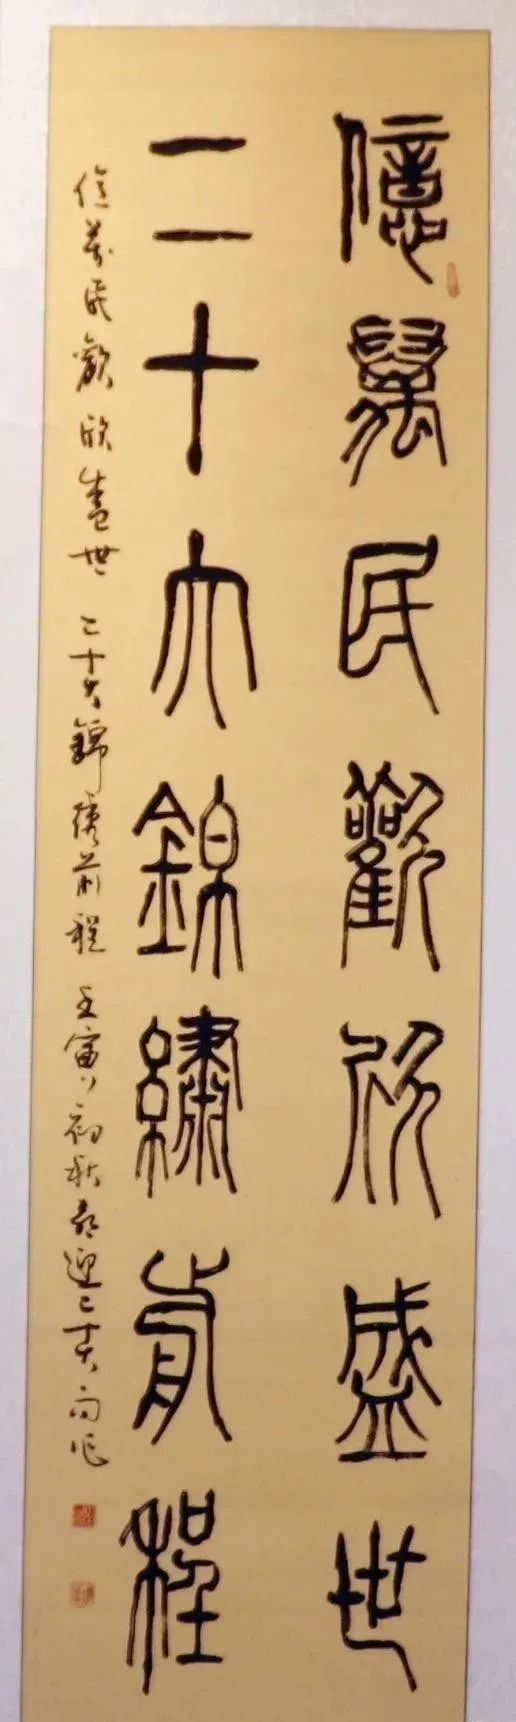 億萬民歡欣盛世
二十大錦繡前程
億萬民歡欣盛世 二十大錦繡前程 壬寅初秋喜迎二十大而作